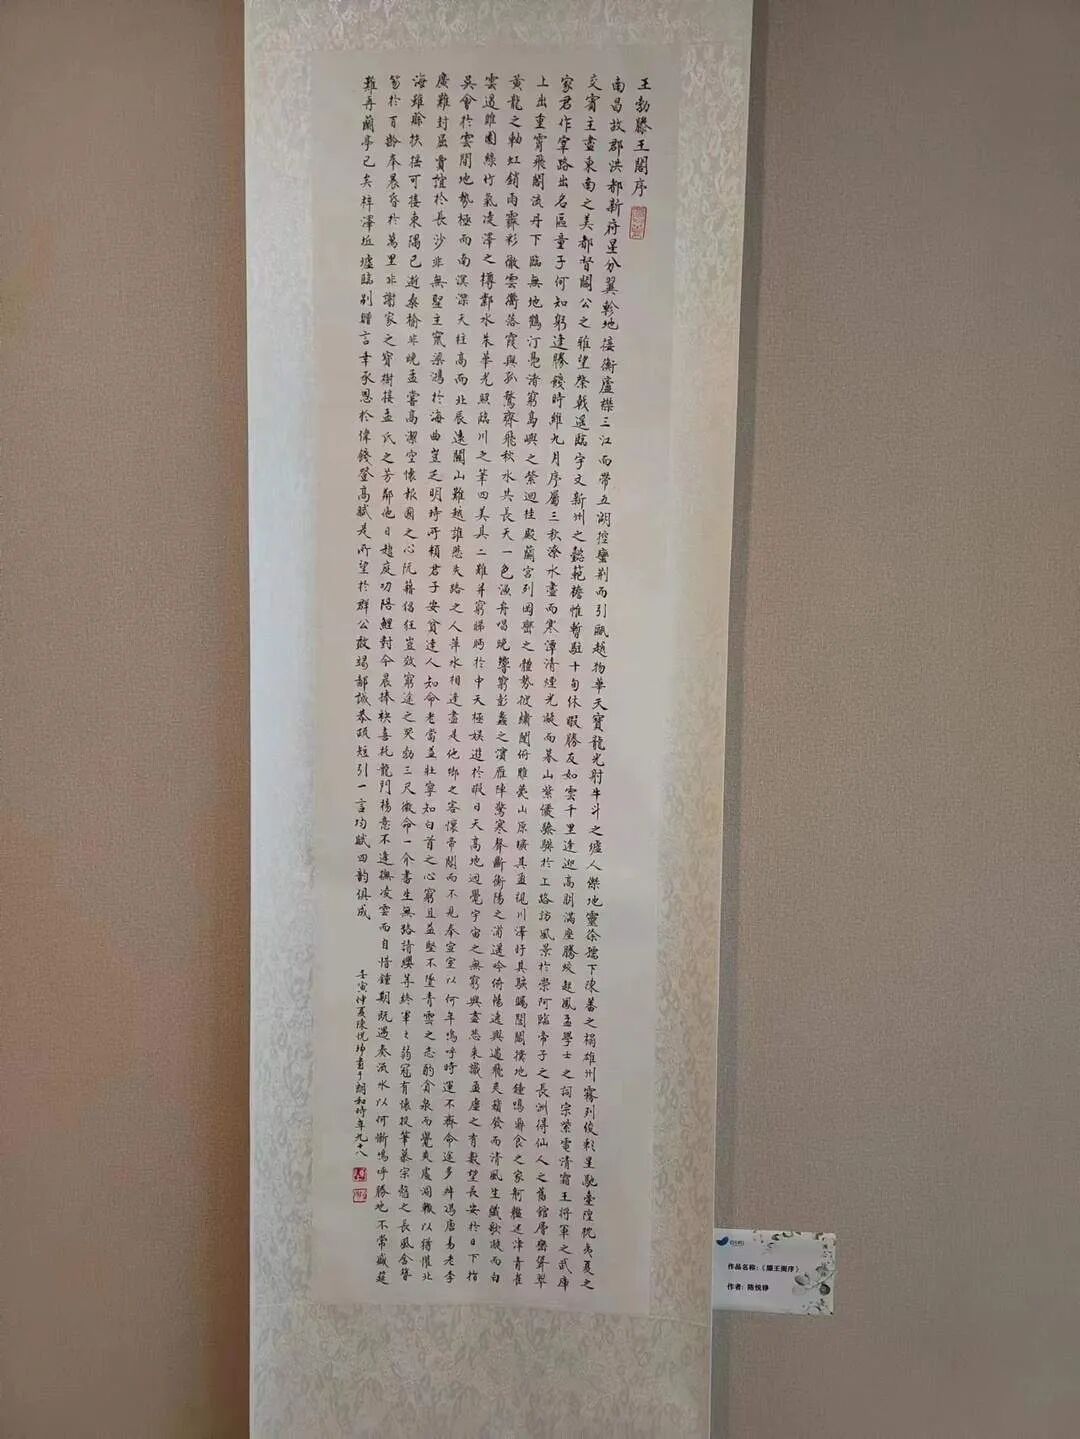 王勃滕王閣序
南昌故郡洪都新府星分翼軫地接衡廬襟三江而帶五湖控蠻荊而引甌越物華天寶龍光射牛斗之墟人傑地靈徐孺下陳蕃之榻雄州霧列俊彩星馳臺隍枕夷夏之
交賓主盡東南之美都督閻公之雅望棨戟遥臨宇文新州之懿範襜帷暫駐十旬休暇勝友如雲千里逢迎高朋滿座騰蛟起鳳孟學士之詞宗紫電清霜王將軍之武庫
家君作宰路出名區童子何知躬逢勝餞時維九月序屬三秋潦水盡而寒潭清煙光凝而暮山紫儼驂騑於上路訪風景於崇阿臨帝子之長洲得仙人之舊館層巒聳翠
上出重霄飛閣流丹下臨無地鶴汀鳧渚窮島嶼之縈迴桂殿蘭宮列岡巒之體勢披繡闥俯雕甍山原曠其盈視川澤盱其駭矚閭閻撲地鐘鳴鼎食之家舸艦迷津青雀
黃龍之軸虹銷雨霽彩徹雲衢落霞與孤鶩齊飛秋水共長天一色漁舟唱晚響窮彭蠡之濱雁陣驚寒聲斷衡陽之浦遥吟俯暢逸興遄飛爽籟發而清風生纖歌凝而白
雲遏睢園綠竹氣凌澤之樽鄴水朱華光照臨川之筆四美具二難并窮睇眄於中天極娛遊於暇日天高地迥覺宇宙之無窮興盡悲來識盈虛之有數望長安於日下指
吳會於雲間地勢極而南溟深天柱高而北辰遠關山難越誰悲失路之人萍水相逢盡是他鄉之客懷帝閽而不見奉宣室以何年嗚呼時運不齊命途多舛馮唐易老李
廣難封屈賈誼於長沙非無聖主竄梁鴻於海曲豈乏明時所賴君子安貧達人知命老當益壯寧知白首之心窮且益堅不墜青雲之志酌貪泉而覺爽處涸轍以猶懽北
海雖賒扶搖可接東隅已逝桑榆非晚孟嘗高潔空懷報國之心阮藉猖狂豈效窮途之哭勃三尺微命一介書生無路請纓等終軍之弱冠有懷投筆慕宗愨之長風舍簪
笏於百齡奉晨昏於萬里非謝家之寶樹接孟氏之芳鄰他日趨庭叨陪鯉對今晨捧袂喜托龍門楊意不逢撫凌雲而自惜鍾期既遇奏流水以何慚嗚呼勝地不常盛筵
難再蘭亭已矣梓澤坵墟臨別贈言幸承恩於偉餞登高賦是所望於群公敢竭鄙誠恭疏短引一言均賦四韻俱成
壬寅仲夏隋悅琤書于頤和時年九十八
作品名称:《滕王阁序》
作者: 隋悦琤